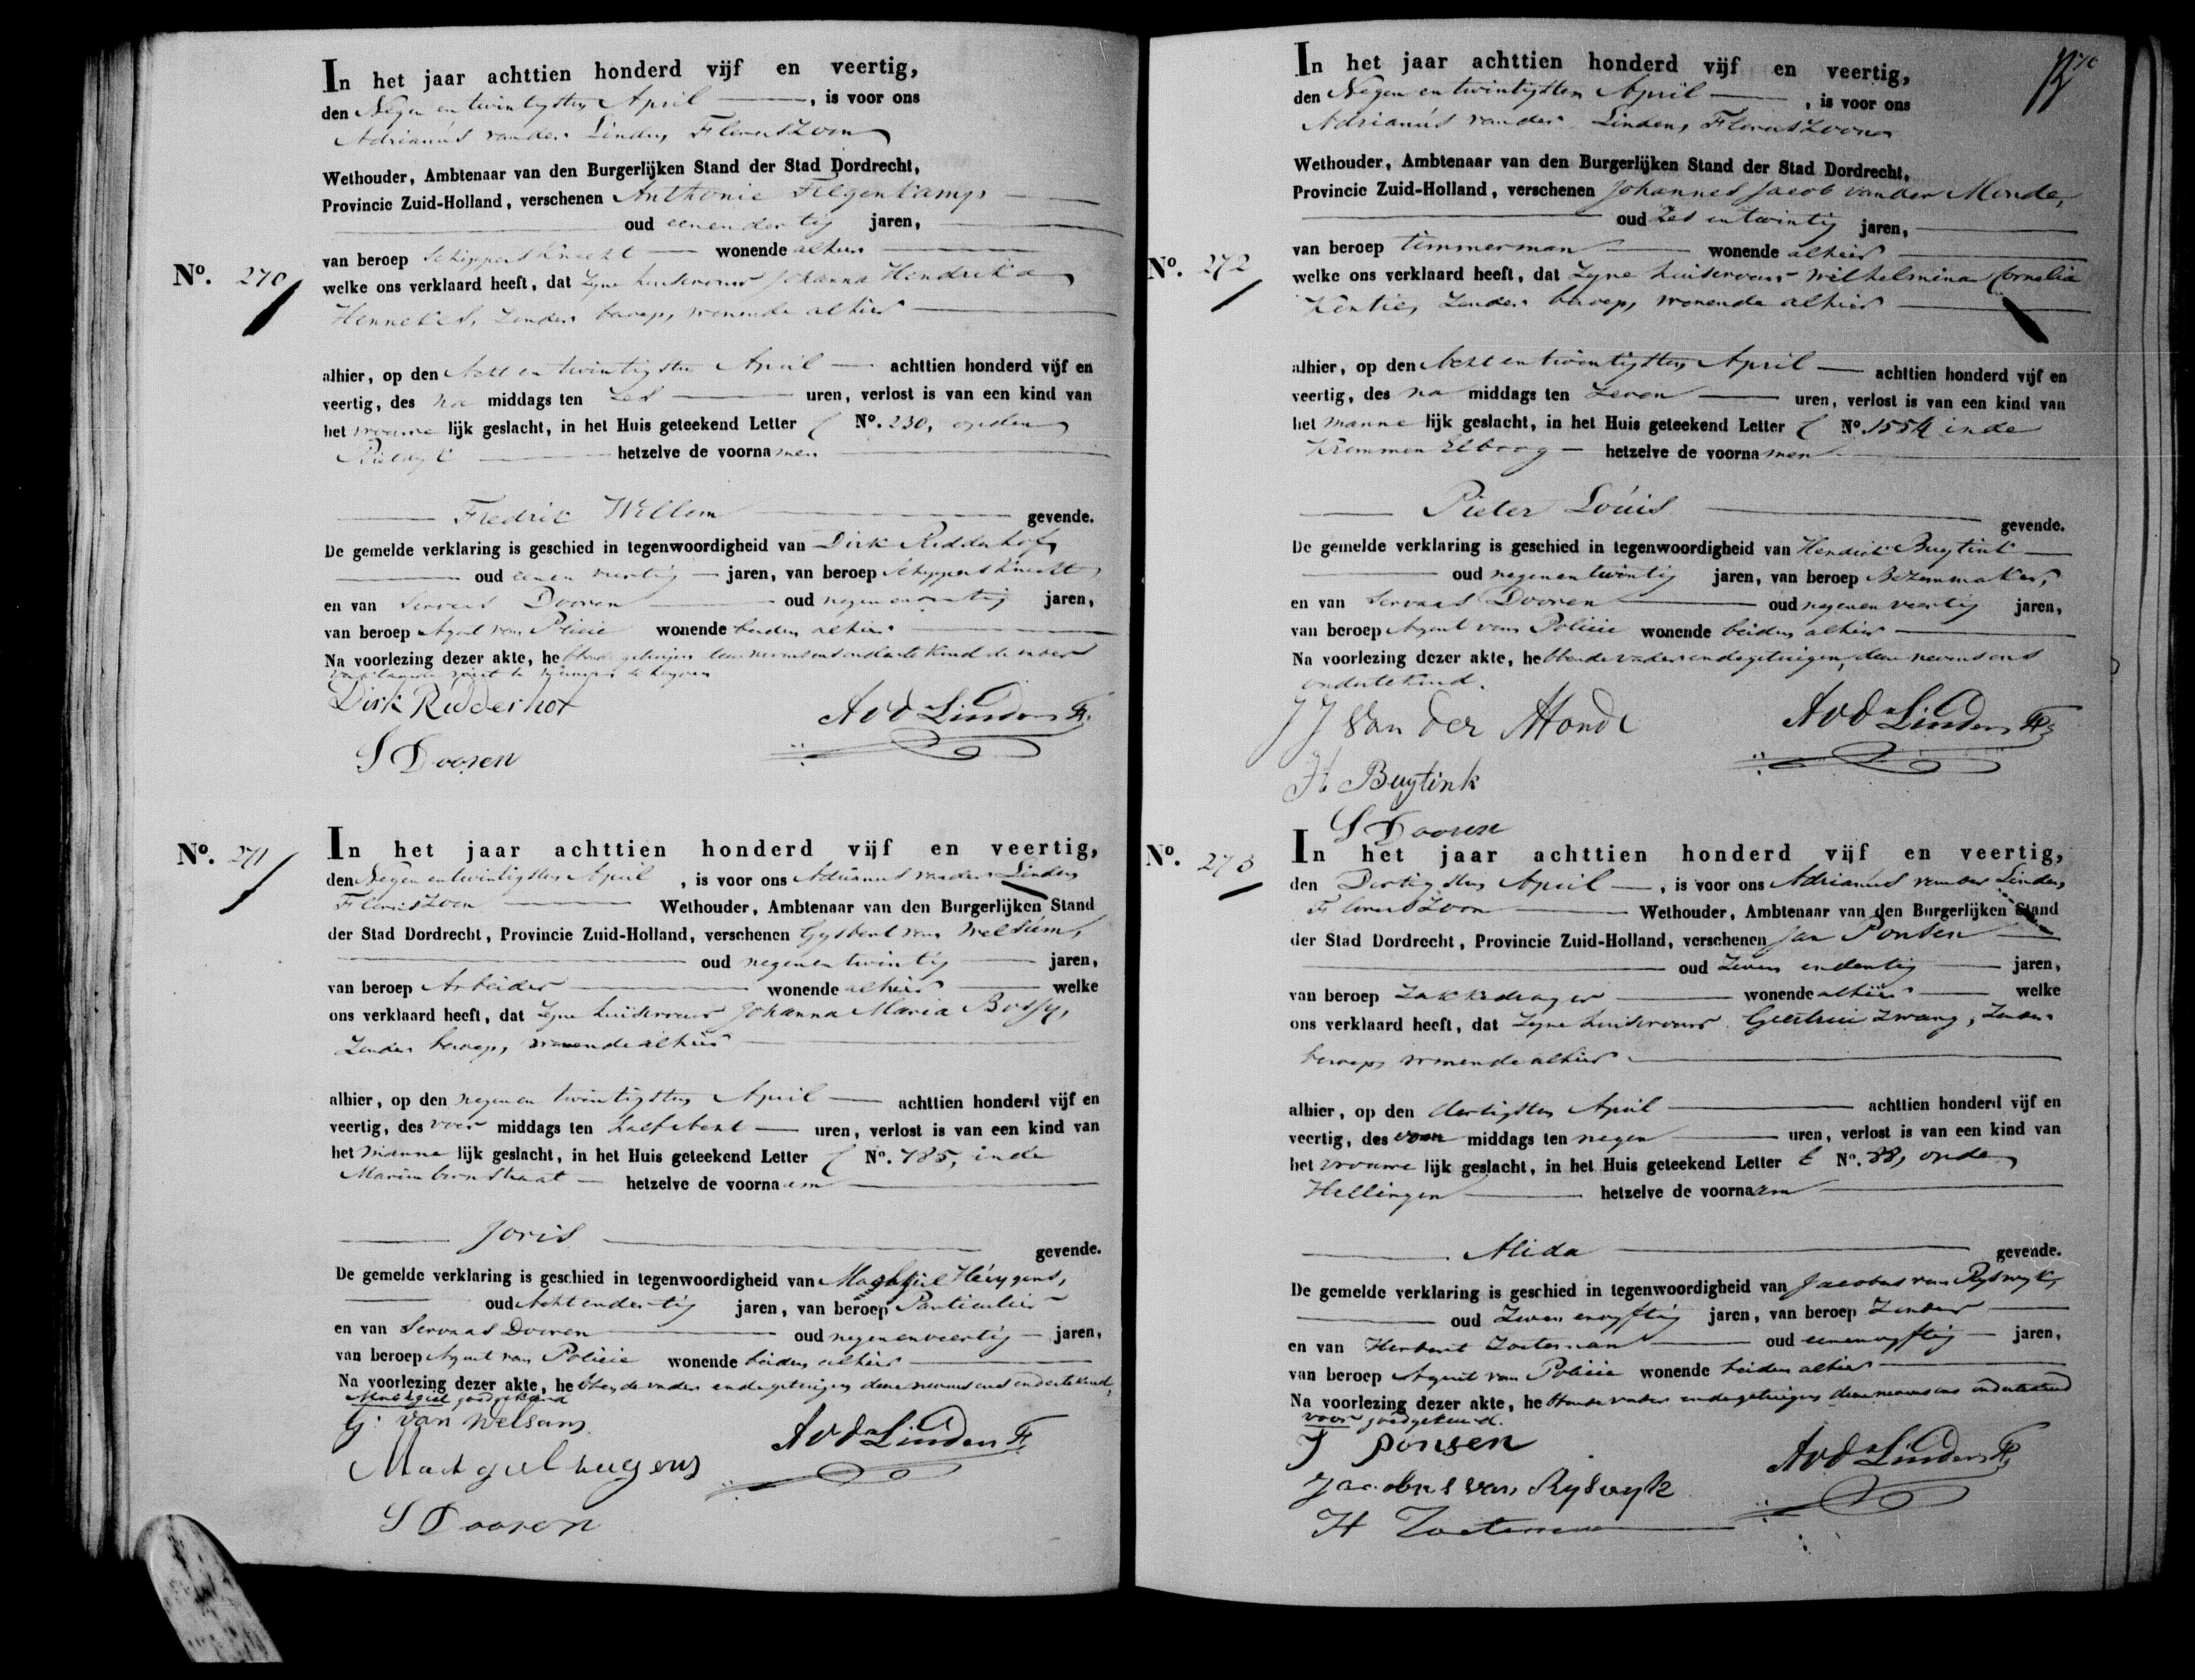 In het jaar achttien honderd vijf en veertig,
den Negen en twintigsten April, is voor ons
Adrianus vander Linden Floriszoon
Wethouder, Ambtenaar van den Burgerlijken Stand der Stad Dordrecht,
Provincie Zuid-Holland, verschenen Anthonie
oud eenendertig jaren,
van beroep Schippersknecht wonende alhier
No. 270
welke ons verklaard heeft, dat Zyne huisvrouw Johanna Hendrika
Hennekes, Zonder beroep, wonende alhier
alhier, op den Acht en twintigsten April achttien honderd vijf en
veertig, des na middags ten Zes uren, verlost is van een kind van
het vrouwe lijk geslacht, in het Huis geteekend Letter No. 230, op den
Rietdyk hetzelve de voornamen
Fredrik Willem gevende.
De gemelde verklaring is geschied in tegenwoordigheid van Dirk Ridderhof
oud eenen veertig jaren, van beroep Schippersknecht
en van Servaas Dooren oud negenenveertig jaren,
van beroep Agent van Policie wonende beiden alhier
Na voorlezing dezer akte, hebben de getuigen deze nevens ons onderteekend de vader
Dirk Ridderhof
AvdLinden Fz
S Dooren
No. 271
In het jaar achttien honderd vijf en veertig,
den Negen en twintigsten April, is voor ons Adrianus vander Linden
Floriszoon Wethouder, Ambtenaar van den Burgerlijken Stand
der Stad Dordrecht, Provincie Zuid-Holland, verschenen Gysbert van Welsum,
oud negenentwintig jaren,
van beroep Arbeider wonende alhier welke
ons verklaard heeft, dat Zyne huisvrouw Johanna Maria Bossy,
Zonder beroep, wonende alhier
alhier, op den negen en twintigsten April achttien honderd vijf en
veertig, des voor middags ten half acht uren, verlost is van een kind van
het manne lijk geslacht, in het Huis geteekend Letter No. 785, in de
Marienbornstraat hetzelve de voornaam
Joris gevende.
De gemelde verklaring is geschied in tegenwoordigheid van Machgiel Huygens,
oud Acht en dertig jaren, van beroep Particulier
en van Servaas Dooren oud negenenveertig jaren,
van beroep Agent van Policie wonende beiden alhier
Na voorlezing dezer akte, hebben de vader en de getuigen deze nevens ons onderteekend,
Machgiel goedgekeurd
G: van Welsum
AvdLinden Fz
Machgiel huegens
S Dooren
In het jaar achttien honderd vijf en veertig,
den Negen en twintigsten April, is voor ons
Adrianus vander Linden, Floriszoon
Wethouder, Ambtenaar van den Burgerlijken Stand der Stad Dordrecht,
Provincie Zuid-Holland, verschenen Johannes Jacob vander Monde,
oud Zes en twintig jaren,
van beroep timmerman wonende alhier
No. 272
welke ons verklaard heeft, dat Zyne huisvrouw Wilhelmina Cornelia
Kentie, Zonder beroep, wonende alhier
alhier, op den Acht en twintigsten April achttien honderd vijf en
veertig, des na middags ten Zeven uren, verlost is van een kind van
het manne lijk geslacht, in het Huis geteekend Letter No. 1554 in de
Krommen Elboog hetzelve de voornamen
Pieter Louis gevende.
De gemelde verklaring is geschied in tegenwoordigheid van Hendrik Buytink
oud negenentwintig jaren, van beroep Bezemmaker,
en van Servaas Dooren oud negenenveertig jaren,
van beroep Agent van Policie wonende beiden alhier
Na voorlezing dezer akte, hebben de vader en de getuigen deze nevens ons
onderteekend.
J J Van der Monde
AvdLinden Fz
H Buytink
S Dooren
No. 273
In het jaar achttien honderd vijf en veertig,
den Dertigsten April, is voor ons Adrianus vander Linden,
Floriszoon Wethouder, Ambtenaar van den Burgerlijken Stand
der Stad Dordrecht, Provincie Zuid-Holland, verschenen Jan Ponsen
oud Zeven en dertig jaren,
van beroep Zakkedrager wonende alhier welke
ons verklaard heeft, dat Zyne huisvrouw Geertrui Zwang, Zonder
beroep, wonende alhier
alhier, op den dertigsten April achttien honderd vijf en
veertig, des voor middags ten negen uren, verlost is van een kind van
het vrouwe lijk geslacht, in het Huis geteekend Letter No. 88, op den
Hellingen hetzelve de voornaam
Alida gevende.
De gemelde verklaring is geschied in tegenwoordigheid van Jacobus van Ryswyk,
oud Zeven en vyftig jaren, van beroep Zonder
en van Herbert Zoeteman oud eenenvyftig jaren,
van beroep Agent van Policie wonende beiden alhier
Na voorlezing dezer akte, hebben de vader en de getuigen deze nevens ons onderteekend
voor goedgekeurd.
J ponsen
AvdLinden Fz
Jacobus van Ryswyk
H Zoeteman